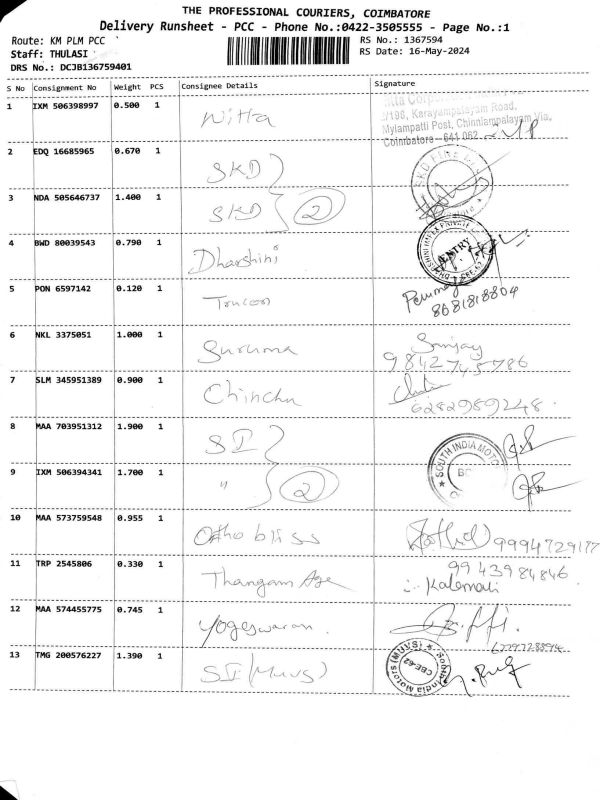 THE PROFESSIONAL COURIERS, COIMBATORE
Delivery Runsheet - PCC - Phone No.:0422-3505555 - Page No.:1
Route: KM PLM PCC RS No.: 1367594
Staff: THULASI RS Date: 16-May-2024
DRS No.: DCJB136759401
S No Consignment No Weight PCS Consignee Details Signature
1 IXM 506398997 0.500 1 Witta
Karayampalayam Road,
Mylampatti Post, Chinniampalayam Via,
Coimbatore - 641 062
2 EDQ 16685965 0.670 1 SKD
3 NDA 505646737 1.400 1 SKD 2
4 BWD 80039543 0.790 1 Dharshini ENTRY
5 PON 6597142 0.120 1
8681818804
6 NKL 3375051 1.000 1 Suruma Sanjay
9842745786
7 SLM 345951389 0.900 1 Chinchu
6282989248
8 MAA 703951312 1.900 1 SI SOUTH INDIA MOTO
9 IXM 506394341 1.700 1 " 2
10 MAA 573759548 0.955 1 Ortho bliss 9994729177
11 TRP 2545806 0.330 1 Thangam Age 9943984846
Kalamani
12 MAA 574455775 0.745 1 Yogeswaran.
13 TMG 200576227 1.390 1 SI (MUVS)